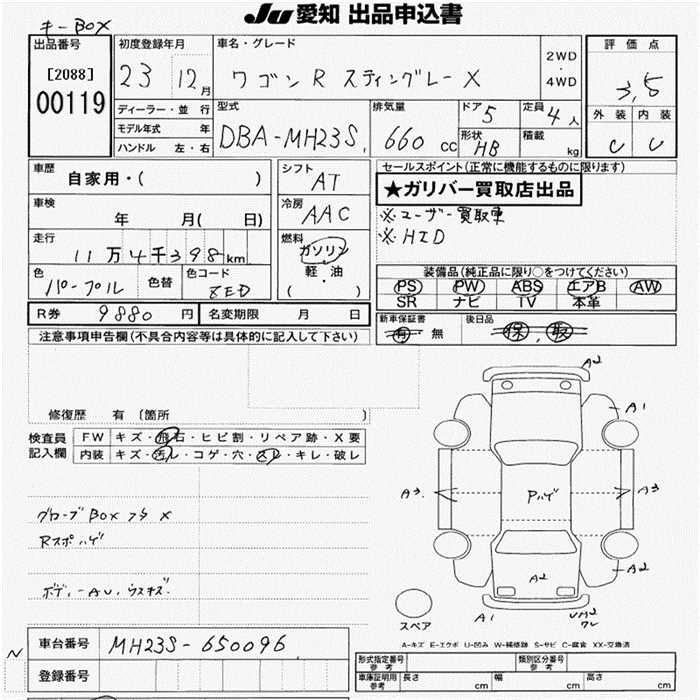 キーBOX
Ju 愛知 出品申込書
出品番号
[2088]
00119
初度登録年月
23 12月
車名・グレード
ワゴンR スティングレー X
2WD
・
4WD
評価点
3,5
外装 内装
C C
ディーラー・並行
モデル年式 年
ハンドル 左・右
型式
DBA-MH23S
排気量
660 cc
ドア 5
形状 HB
定員 4人
積載 kg
車歴
自家用・( )
シフト
AT
車検
年 月( 日)
冷房
AAC
走行
11万4千398km
燃料
ガソリン
軽・油
( )
色
パープル
色替
色コード
ZED
R券 9880 円
名変期限 月 日
セールスポイント(正常に機能するものに限ります)
★ガリバー買取店出品
※ユーザー買取車
※HID
装備品(純正品に限り○をつけてください)
PS PW ABS エアB AW
SR ナビ TV 本革
新車保証書
有 無
後日品
保、取
注意事項申告欄(不具合内容等は具体的に記入して下さい)
修復歴 有 〔箇所 〕
検査員
記入欄
FW キズ・飛石・ヒビ割・リペア跡・X要
内装 キズ・汚レ・コゲ・穴・スレ・キレ・破レ
グローブBOXフタ X
Rスポハゲ
ボディーAU.ウスキズ.
A2
A1
A3
Pハゲ
A3
A2
A2
A1
スペア
A-キズ E-エクボ U-凹み W-補修跡 S-サビ C-腐食 XX-交換済
N
車台番号 MH23S-650096
登録番号
形式指定番号
参考
類別区分番号
参考
車庫証明用
参考
長さ cm
幅 cm
高さ cm